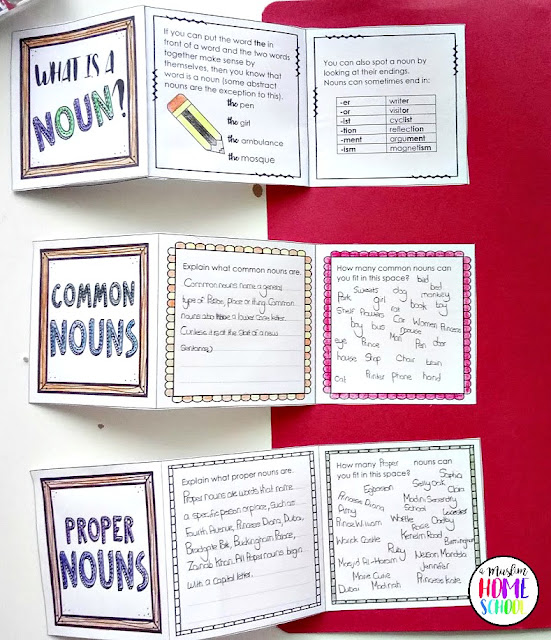 WHAT IS A
NOUN?
If you can put the word the in
front of a word and the two words
together make sense by
themselves, then you know that
word is a noun (some abstract
nouns are the exception to this).
the pen
the girl
the ambulance
the mosque
You can also spot a noun by
looking at their endings.
Nouns can sometimes end in:
-er writer
-or visitor
-ist cyclist
-tion reflection
-ment argument
-ism magnetism
COMMON
NOUNS
Explain what common nouns are.
Common nouns name a general
type of Person, place or thing. Common
nouns also have a lower case letter.
(unless it is at the start of a new
Sentance.)
How many common nouns can
you fit in this space? bird
Sweets dog bed
monkey
Park girl rat book bag
Shelf flowers Car Women Princess
boy bus mouse
eye Prince Man Pen door
house Shop Chair town
Cat Printer phone hand
PROPER
NOUNS
Explain what proper nouns are.
Proper nouns are words that name
a specific person or place, Such as:
Fourth Avenue, Princess Diana, Dubai,
Bradgate Park, Buckingham Palace,
Zainab Khan. All Proper nouns begin
With a Capital letter.
How many Proper nouns can
you fit in this space? Sophia
Edgbaston Selly Oak Clain
Princess Diana Madini Secondry
Amy School Leicester
Prince William Waffle Oadley
Rosie
Warick Castle Kenelm Road Birmingham
Ruby
Masjid Al-Haram Nelson Mandela
Jennifer
Marie Curie
Dubai Madinah Princess Kate
a Muslim
HOME
SCHOOL